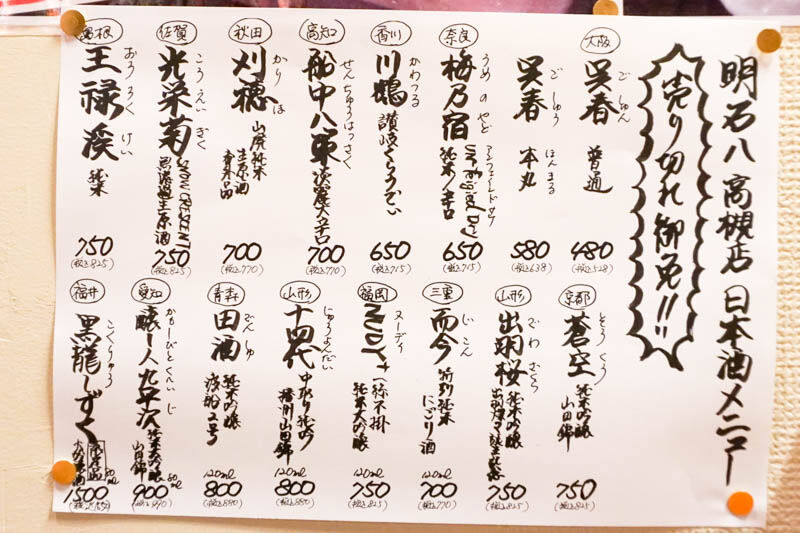 明石八 高槻店 日本酒メニュー
売り切れ御免!!
大阪
呉春 ごしゅん 普通
480
(税込528)
呉春 ごしゅん 本丸 ほんまる
580
(税込638)
奈良
梅乃宿 うめのやど
純米/辛口
650
(税込715)
香川
川鶴 かわつる 讃岐くらうでぃ
650
(税込715)
高知
船中八策 せんちゅうはっさく
700
(税込770)
秋田
刈穂 かりほ
山廃純米
生原酒
番外品
700
(税込770)
佐賀
光栄菊 こうえいぎく
SNOW CRESCENT
無濾過生原酒
750
(税込825)
島根
王祿 渓 おうろくけい 純米
750
(税込825)
京都
蒼空 そうくう
純米吟醸
山田錦
750
(税込825)
山形
出羽桜 でわざくら
純米吟醸
750
(税込825)
三重
而今 じこん
特別純米
にごり酒
120ml
700
(税込770)
福岡
ヌーディ
純米大吟醸
120ml
750
(税込825)
山形
十四代 じゅうよんだい
中取り純吟
播州山田錦
120ml
800
(税込880)
青森
田酒 でんしゅ
純米吟醸
120ml
800
(税込880)
愛知
醸し人九平次 かもしびとくへいじ
純米大吟醸
山田錦
80ml
900
(税込990)
福井
黒龍しずく こくりゅう
1500